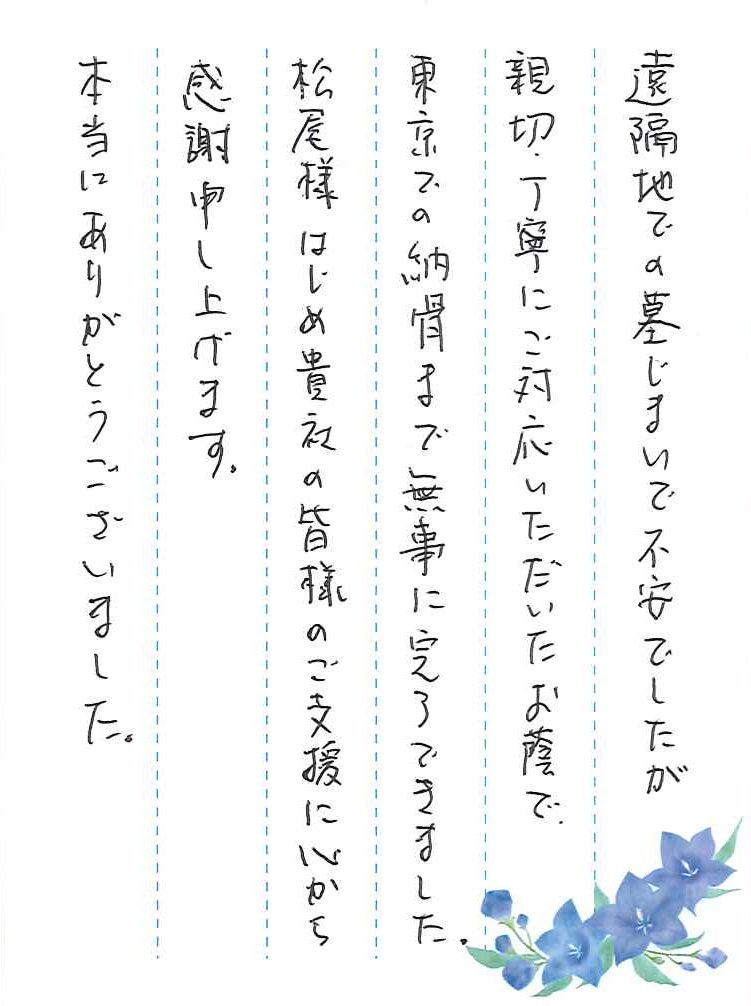 遠隔地での墓じまいで不安でしたが
親切・丁寧にご対応いただいたお蔭で、
東京での納骨まで無事に完了できました。
松尾様はじめ貴社の皆様のご支援に心から
感謝申し上げます。
本当にありがとうございました。